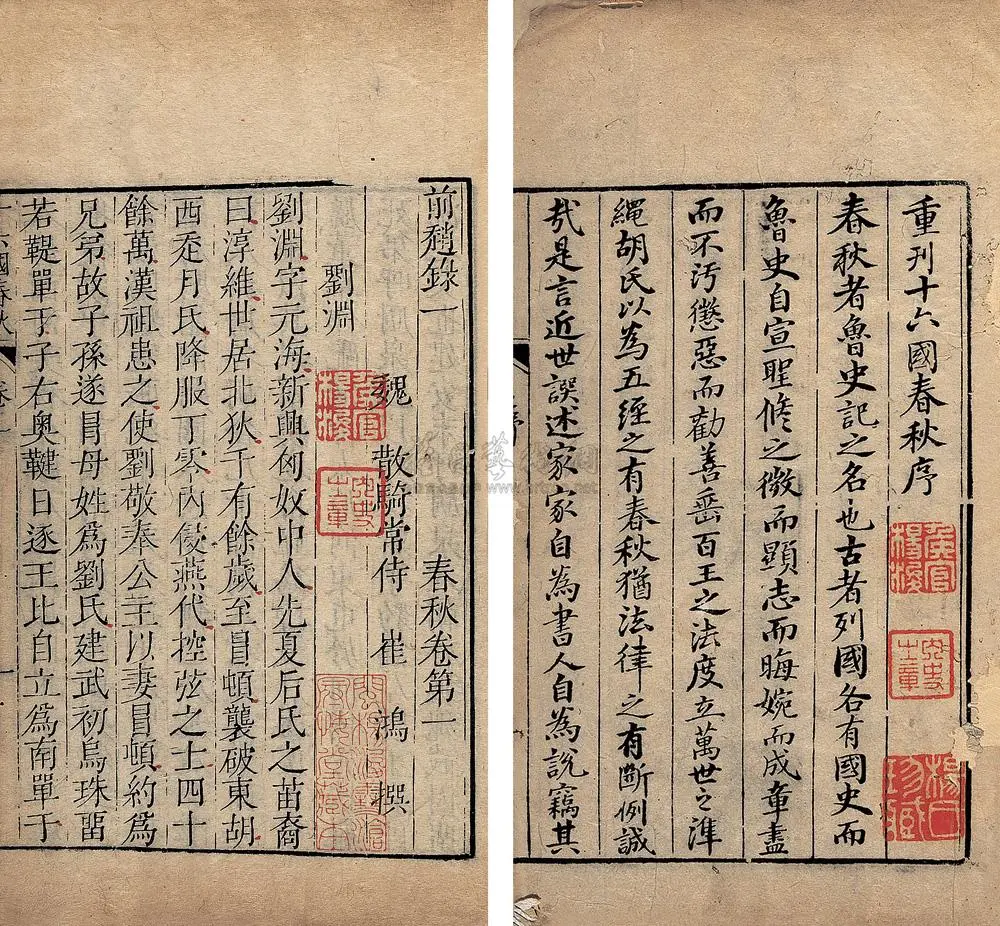 重刊十六國春秋序
春秋者魯史記之名也古者列國各有國史而
魯史自宣聖脩之微而顯志而晦婉而成章盡
而不汚懲惡而勸善啚百王之法度立萬世之準
繩胡氏以為五經之有春秋猶法律之有斷例誠
㢤是言近世譔述家家自為書人自為說竊其
前趙錄一 春秋卷第一
魏 散騎常侍 崔 鴻 撰
劉淵
劉淵字元海新興匈奴中人先夏后氏之苗裔
曰淳維世居北狄千有餘歲至冒頓襲破東胡
西走月氏降服丁零內侵燕代控弦之士四十
餘萬漢祖患之使劉敬奉公主以妻冒頓約為
兄弟故子孫遂冒母姓爲劉氏建武初烏珠留
若鞮單于子右奧鞬日逐王比自立爲南單于
十六國春秋 卷一